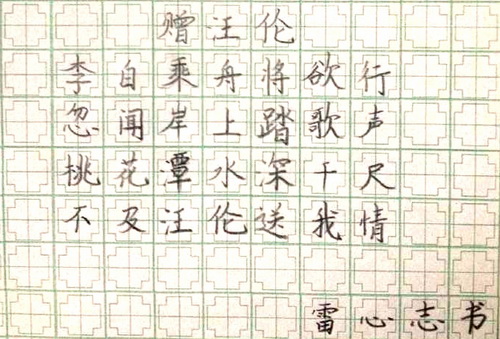 赠汪伦
李白乘舟将欲行
忽闻岸上踏歌声
桃花潭水深千尺
不及汪伦送我情
雷心志书